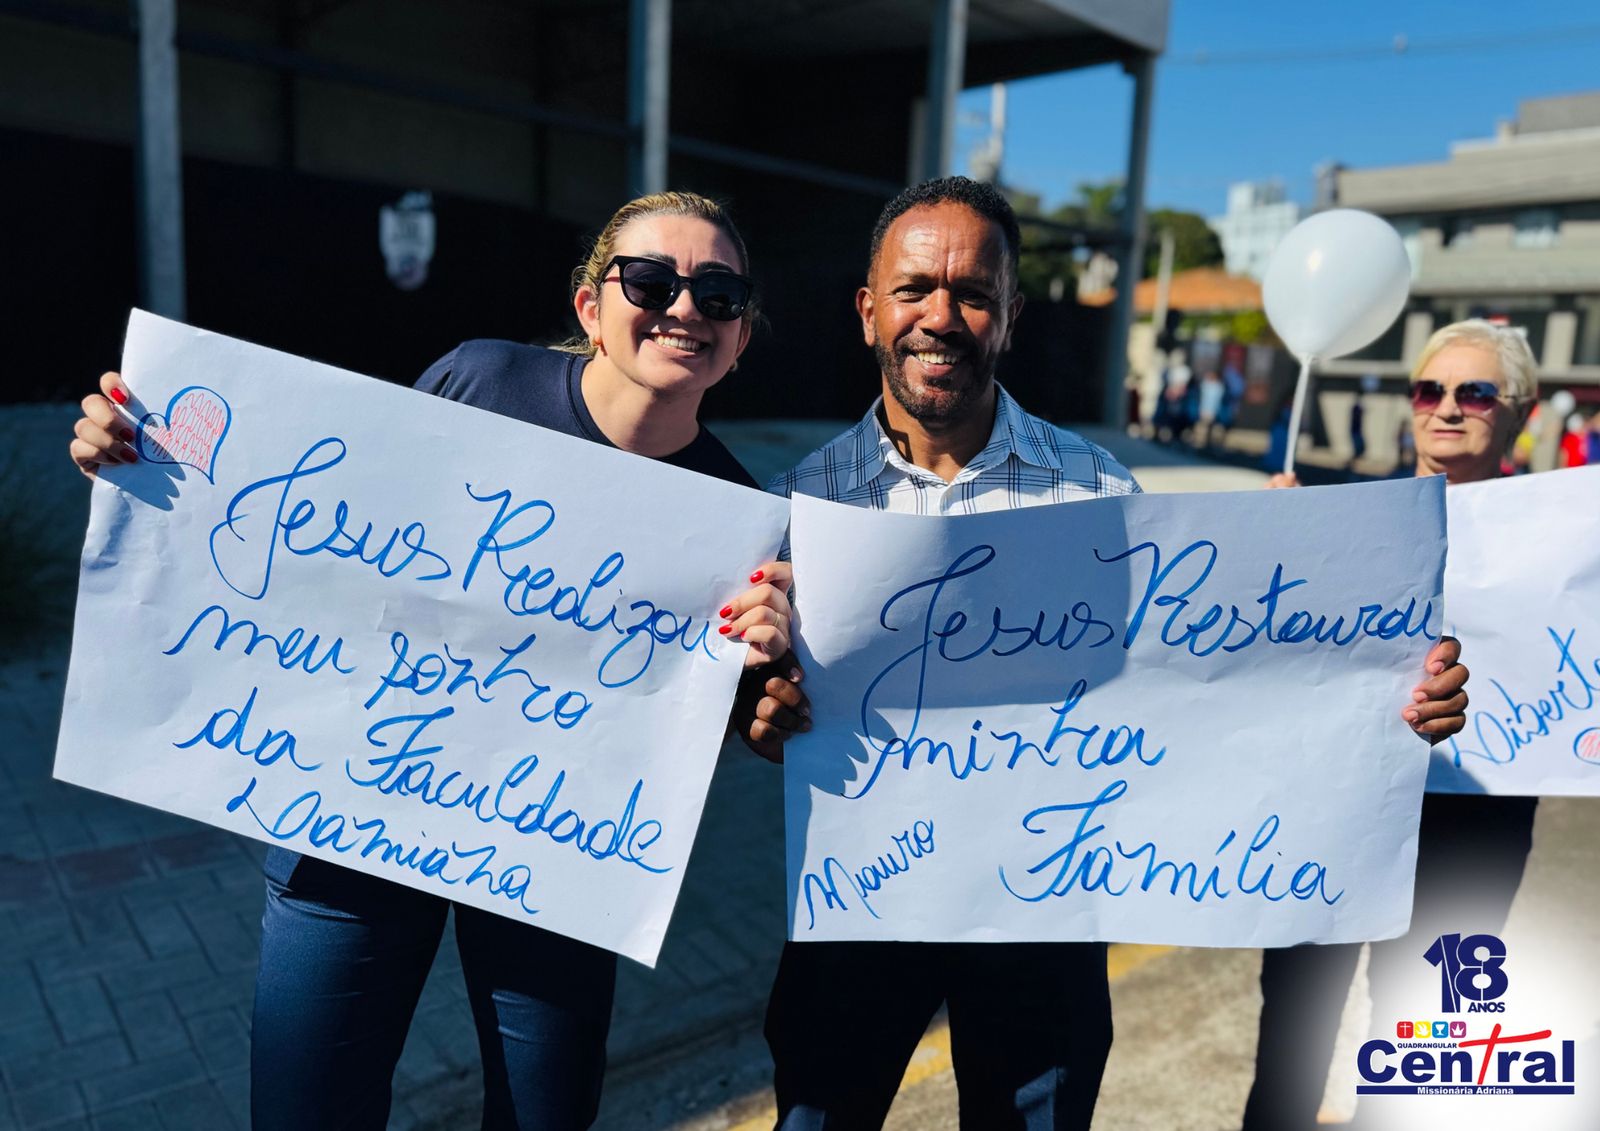 Jesus Realizou
meu sonho
da Faculdade
Damiana
Jesus Restaurou
minha
Família
Mauro
18
ANOS
QUADRANGULAR
Central
Missionária Adriana